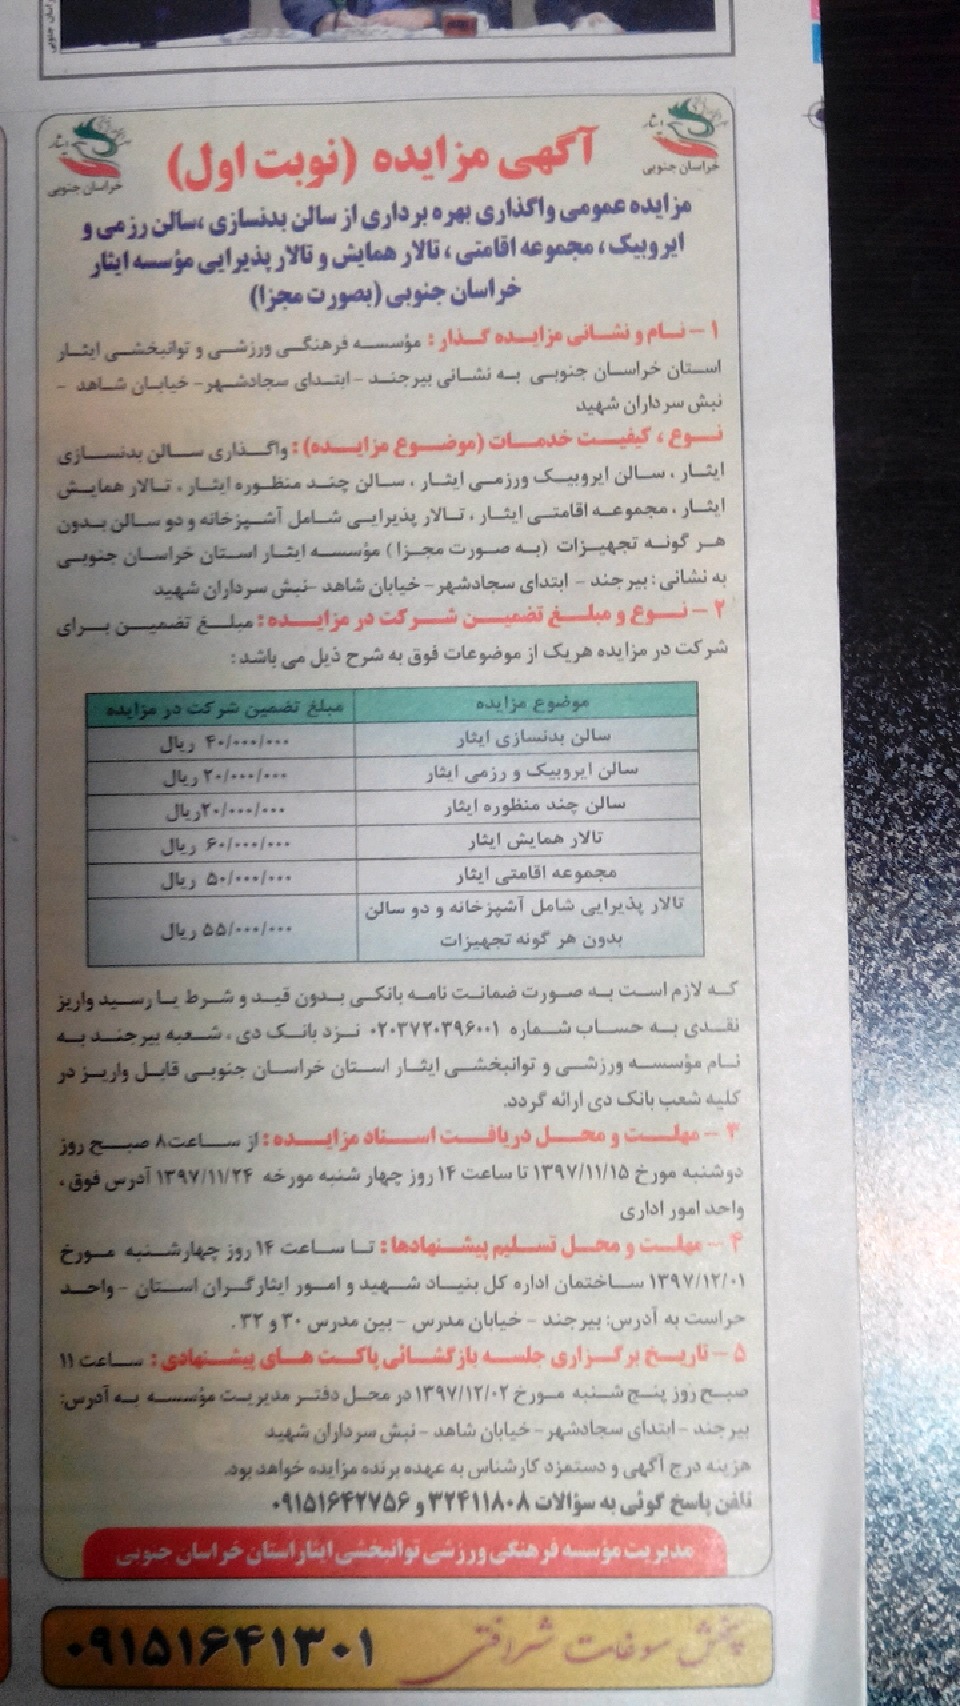 ایثار
خراسان جنوبی
ایثار
خراسان جنوبی
آگهی مزایده (نوبت اول)
مزایده عمومی واگذاری بهره برداری از سالن بدنسازی ،سالن رزمی و
ایروبیک ، مجموعه اقامتی ، تالار همایش و تالار پذیرایی مؤسسه ایثار
خراسان جنوبی (بصورت مجزا)
۱ – نام و نشانی مزایده گذار : مؤسسه فرهنگی ورزشی و توانبخشی ایثار
استان خراسان جنوبی به نشانی بیرجند – ابتدای سجادشهر – خیابان شاهد –
نبش سرداران شهید
نوع ، کیفیت خدمات (موضوع مزایده) : واگذاری سالن بدنسازی
ایثار ، سالن ایروبیک ورزمی ایثار ، سالن چند منظوره ایثار ، تالار همایش
ایثار ، مجموعه اقامتی ایثار ، تالار پذیرایی شامل آشپزخانه و دو سالن بدون
هر گونه تجهیزات (به صورت مجزا) مؤسسه ایثار استان خراسان جنوبی
به نشانی : بیرجند – ابتدای سجادشهر – خیابان شاهد –نبش سرداران شهید
۲ – نوع و مبلغ تضمین شرکت در مزایده : مبلغ تضمین برای
شرکت در مزایده هریک از موضوعات فوق به شرح ذیل می باشد :
موضوع مزایده مبلغ تضمین شرکت در مزایده
سالن بدنسازی ایثار ۴۰/۰۰۰/۰۰۰ ریال
سالن ایروبیک و رزمی ایثار ۲۰/۰۰۰/۰۰۰ ریال
سالن چند منظوره ایثار ۲۰/۰۰۰/۰۰۰ریال
تالار همایش ایثار ۶۰/۰۰۰/۰۰۰ ریال
مجموعه اقامتی ایثار ۵۰/۰۰۰/۰۰۰ ریال
تالار پذیرایی شامل آشپزخانه و دو سالن
بدون هر گونه تجهیزات ۵۵/۰۰۰/۰۰۰ ریال
که لازم است به صورت ضمانت نامه بانکی بدون قید و شرط یا رسید واریز
نقدی به حساب شماره ۰۲۰۳۷۲۰۳۹۶۰۰۱ نزد بانک دی ، شعبه بیرجند به
نام مؤسسه ورزشی و توانبخشی ایثار استان خراسان جنوبی قابل واریز در
کلیه شعب بانک دی ارائه گردد.
۳ – مهلت و محل دریافت اسناد مزایده : از ساعت۸ صبح روز
دوشنبه مورخ ۱۳۹۷/۱۱/۱۵ تا ساعت ۱۴ روز چهار شنبه مورخه ۱۳۹۷/۱۱/۲۴ آدرس فوق ،
واحد امور اداری
۴ – مهلت و محل تسلیم پیشنهادها : تا ساعت ۱۴ روز چهارشنبه مورخ
۱۳۹۷/۱۲/۰۱ ساختمان اداره کل بنیاد شهید و امور ایثارگران استان – واحد
حراست به آدرس: بیرجند – خیابان مدرس – بین مدرس ۳۰ و ۳۲ .
۵ – تاریخ برگزاری جلسه بازگشائی پاکت های پیشنهادی : ساعت ۱۱
صبح روز پنج شنبه مورخ ۱۳۹۷/۱۲/۰۲ در محل دفتر مدیریت مؤسسه به آدرس:
بیرجند – ابتدای سجادشهر – خیابان شاهد – نبش سرداران شهید
هزینه درج آگهی و دستمزد کارشناس به عهده برنده مزایده خواهد بود.
تلفن پاسخ گوئی به سؤالات ۳۲۴۱۱۸۰۸ و ۰۹۱۵۱۶۴۲۷۵۶
مدیریت مؤسسه فرهنگی ورزشی توانبخشی ایثاراستان خراسان جنوبی
پخش سوغات شرافتی ۰۹۱۵۱۶۴۱۳۰۱